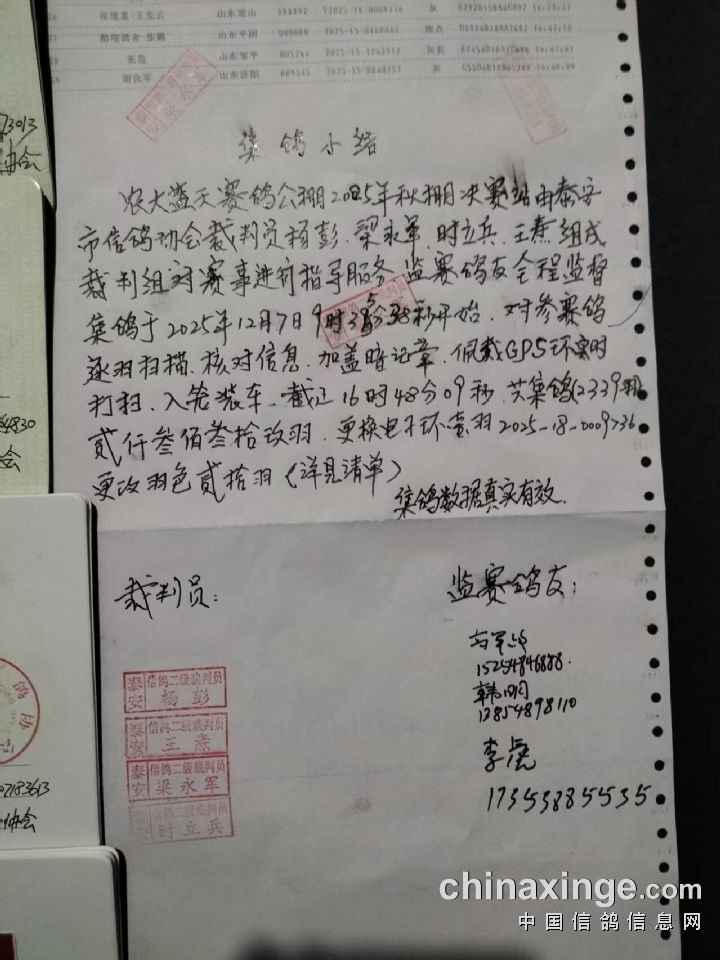 张范 山东邹平
谢汝军 山东济阳
集鸽小结
农大蓝天赛鸽公棚2025年秋棚决赛站由泰安
市信鸽协会裁判员杨彭、梁永军、时立兵、王焘组成
裁判组对赛事进行指导服务、监赛鸽友全程监督
集鸽于2025年12月7日9时35分38秒开始,对参赛鸽
逐羽扫描、核对信息、加盖暗记章、佩戴GPS环实时
打扫、入笼装车、截止16时48分09秒,共集鸽(2339羽)
贰仟叁佰叁拾玖羽、更换电子环壹羽2025-18-0009736
更改羽色贰拾羽(详见清单)
集鸽数据真实有效.
裁判员:
监赛鸽友:
15254846888.
韩明
13854898110
17353885535
泰安 信鸽二级裁判员 杨彭
泰安 信鸽二级裁判员 王焘
泰安 信鸽二级裁判员 梁永军
泰安 信鸽二级裁判员 时立兵
73013
协会
4830
会
7183613
协会
chinaxinge.com
中国信鸽信息网